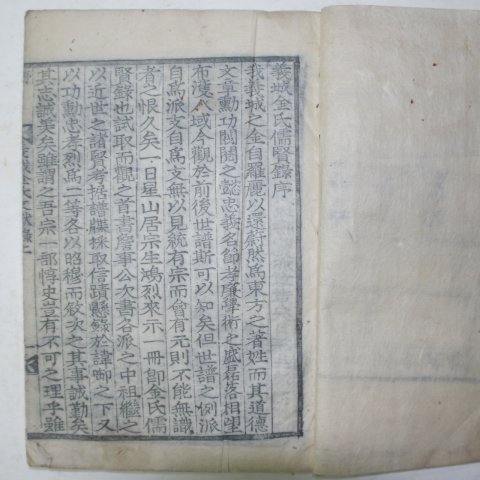 義城金氏儒賢錄序
我義城之金自羅麗以還蔚然爲東方之著姓而其道德
文章勳功閥閱之懿忠義名節孝廉學術之盛磊落相望
布濩八域今觀於前後世譜斯可以知矣但世譜之例派
自爲派支自爲支無以見統有宗而會有元則不能無識
者之恨久矣一日星山居宗生鴻烈來示一冊卽金氏儒
賢錄也試取而觀之首書詹事公次書各派之中祖繼之
以近世之諸賢考據譜牒採取信蹟懸錄於諱啣之下又
以功勳忠孝烈爲二等各以昭穆而敘次之其事誠勤矣
其志誠美矣雖謂之吾宗一部惇史豈有不可之理乎雖